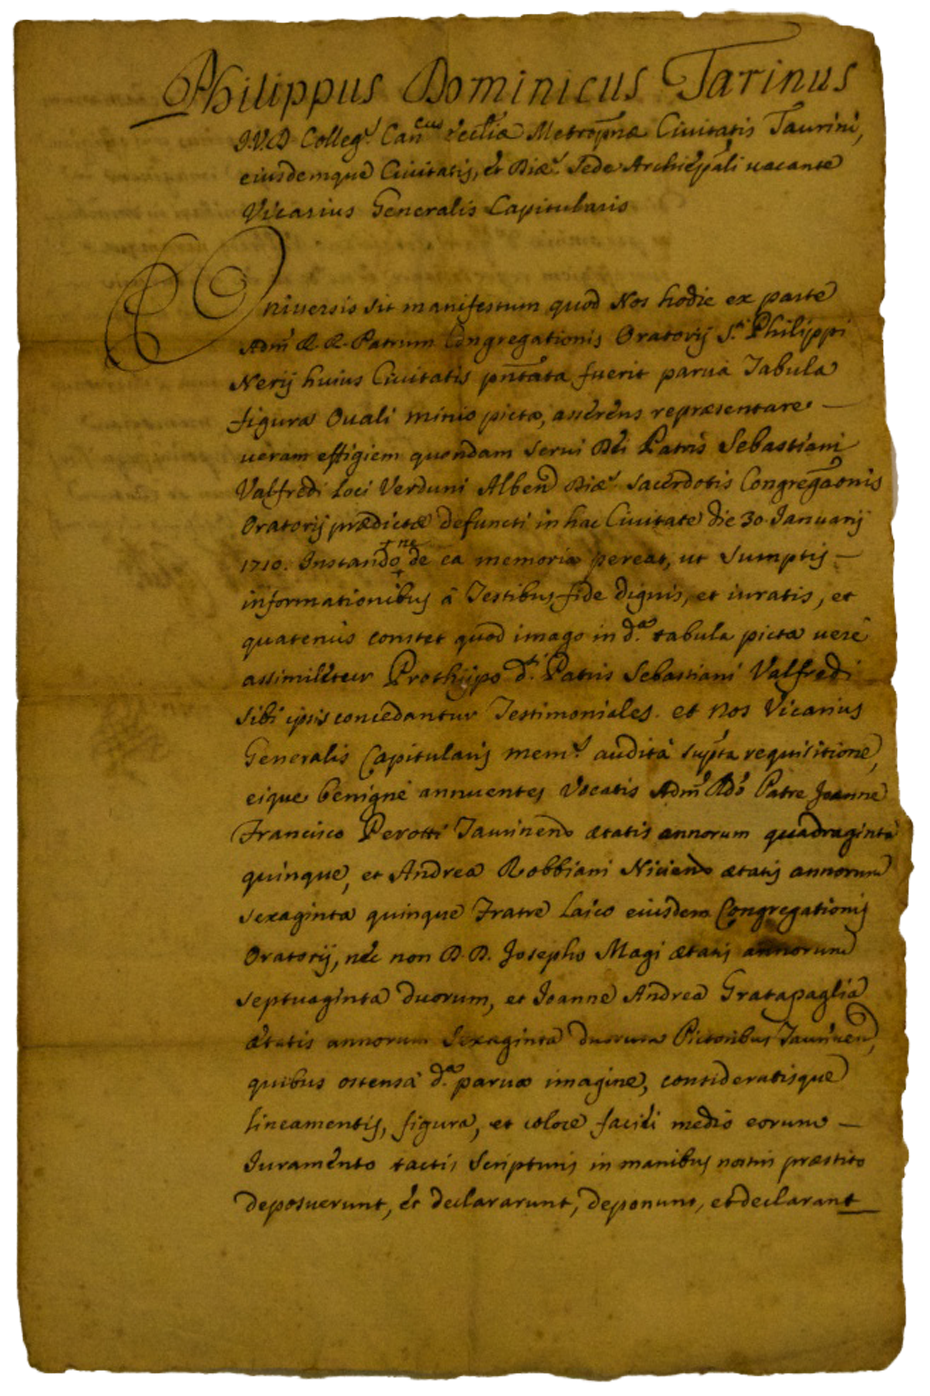 Philippus Dominicus Tarinus
J.V.D. Colleg.s Can.cus Eccl̃iæ Metrop̃næ Civitatis Taurini,
eiusdemque Civitatis, et Diæc.s Sede Archiep̃ali vacante
Vicarius Generalis Capitularis
Universis sit manifestum quod Nos hodie ex parte
Adm̃ R. R. Patrum Congregationis Oratorij S.ti Philippi
Nerij huius Civitatis pñtata fuerit parva Tabula
figuræ Ovali minio picta, asserens repræsentare —
veram effigiem quondam Servi Dei Patris Sebastiani
Valfredi loci Verduni Alben̄ Diæc.s Sacerdotis Congregãonis
Oratorij prædictæ defuncti in hac Civitate die 30 Januarij
1710. Instando ne de ea memoria pereat, ut sumptis —
informationibus à Testibus fide dignis, et iuratis, et
quatenus constet quod imago in d.a tabula picta vere
assimiletur Prothijpo d.ti Patris Sebastiani Valfredi
sibi ipsis concedantur Testimoniales. et Nos Vicarius
Generalis Capitularis mem.s audità sup̃ta requisitione,
eique benignè annuentes Vocatis Adm̃ Rdo Patre Joanne
Francisco Perotti Taurinen̄ ætatis annorum quadraginta
quinque, et Andrea Robbiani Nicien̄ ætatis annorum
sexaginta quinque Fratre Laico eiusdem Congregationis
Oratorij, nec non D. D. Josepho Magi ætatis annorum
septuaginta duorum, et Joanne Andrea Gratapaglia
ætatis annorum sexaginta duorum Pictoribus Taurinen̄,
quibus ostensà d.a parva imagine, consideratisque
lineamentis, figura, et colore faciei medio eorum —
Juramento tactis Scripturis in manibus nostris præstito
deposuerunt, et declararunt, deponunt, et declarant